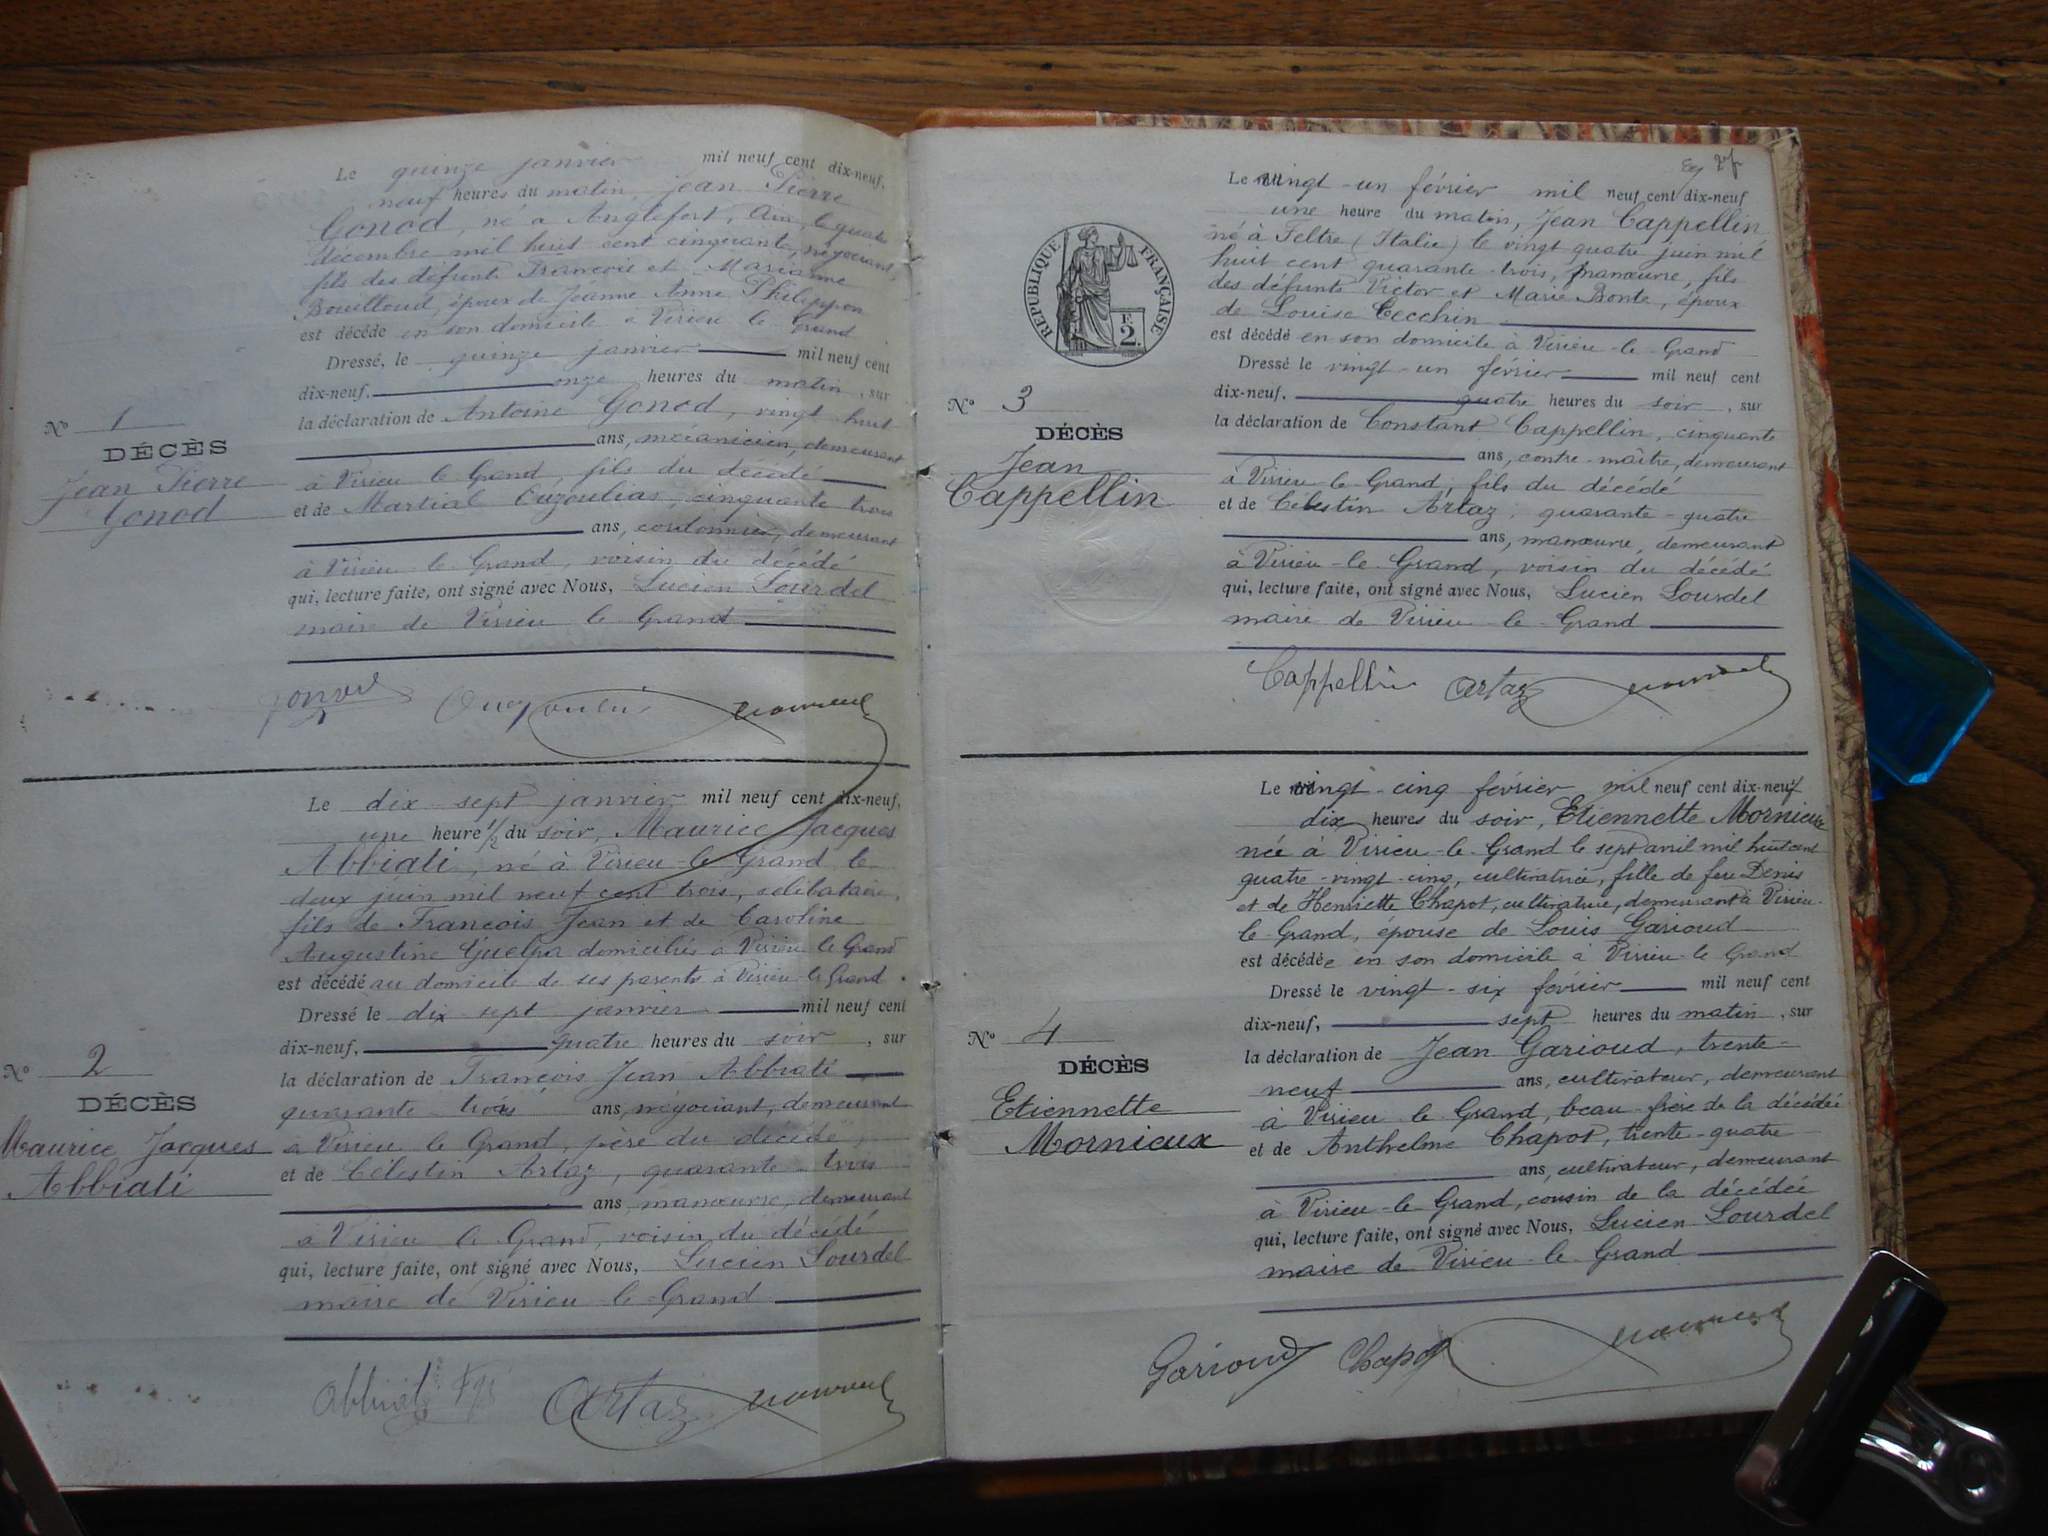 Le quinze janvier mil neuf cent dix-neuf,
neuf heures du matin, Jean Pierre
Gonod, né à Anglefort, Ain, le quatre
décembre mil huit cent cinquante, négociant,
fils des défunts François et Marianne
Bouilloud, époux de Jeanne Anne Philippon
est décédé en son domicile à Virieu le Grand
Dressé, le quinze janvier mil neuf cent
dix-neuf, onze heures du matin, sur
la déclaration de Antoine Gonod, vingt huit
ans, mécanicien, demeurant
à Virieu le Grand, fils du décédé
et de Martial Ouzoulias, cinquante trois
ans, cordonnier, demeurant
à Virieu le Grand, voisin du décédé
qui, lecture faite, ont signé avec Nous, Lucien Lourdel
maire de Virieu le Grand
N° 1
DÉCÈS
Jean Pierre
Gonod
Le dix sept janvier mil neuf cent dix-neuf,
une heure 1/2 du soir, Maurice Jacques
Abbiati, né à Virieu-le Grand le
deux juin mil neuf cent trois, célibataire,
fils de François Jean et de Caroline
Augustine Guelpa domiciliés à Virieu le Grand
est décédé au domicile de ses parents à Virieu-le Grand.
Dressé le dix-sept janvier mil neuf cent
dix-neuf, quatre heures du soir, sur
la déclaration de François Jean Abbiati
quarante trois ans, négociant, demeurant
à Virieu le Grand, père du décédé,
et de Célestin Artaz, quarante trois
ans, manœuvre, demeurant
à Virieu le Grand, voisin du décédé
qui, lecture faite, ont signé avec Nous, Lucien Lourdel
maire de Virieu le Grand
N° 2
DÉCÈS
Maurice Jacques
Abbiati
Artaz
RÉPUBLIQUE FRANÇAISE
F.
2.
Le vingt-un février mil neuf cent dix-neuf
une heure du matin, Jean Cappellin
né à Feltre (Italie) le vingt quatre juin mil
huit cent quarante-trois, manœuvre, fils
des défunts Victor et Marie Bonte, époux
de Louise Cecchin
est décédé en son domicile à Virieu-le-Grand
Dressé le vingt-un février mil neuf cent
dix-neuf, quatre heures du soir, sur
la déclaration de Constant Cappellin, cinquante
ans, contre-maître, demeurant
à Virieu-le-Grand, fils du décédé
et de Célestin Artaz, quarante-quatre
ans, manœuvre, demeurant
à Virieu-le-Grand, voisin du décédé
qui, lecture faite, ont signé avec Nous, Lucien Lourdel
maire de Virieu-le-Grand
N° 3
DÉCÈS
Jean
Cappellin
Cappellin Artaz
Le vingt-cinq février mil neuf cent dix-neuf
dix heures du soir, Etiennette Mornieux
née à Virieu-le-Grand le sept avril mil huit cent
quatre-vingt-cinq, cultivatrice, fille de feu Denis
et de Henriette Chapot, cultivatrice, demeurant à Virieu-
le-Grand, épouse de Louis Garioud
est décédée en son domicile à Virieu-le-Grand
Dressé le vingt-six février mil neuf cent
dix-neuf, sept heures du matin, sur
la déclaration de Jean Garioud, trente-
neuf ans, cultivateur, demeurant
à Virieu le Grand, beau-frère de la décédée
et de Anthelme Chapot, trente-quatre
ans, cultivateur, demeurant
à Virieu-le-Grand, cousin de la décédée
qui, lecture faite, ont signé avec Nous, Lucien Lourdel
maire de Virieu-le-Grand
N° 4
DÉCÈS
Etiennette
Mornieux
Garioud Chapot